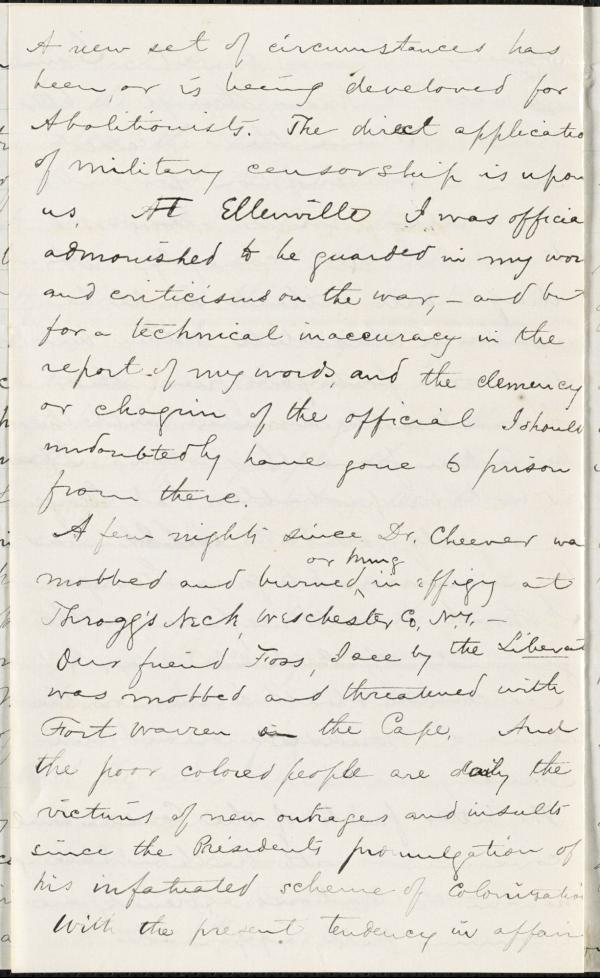 A new set of circumstances has
been, or is being developed for
Abolitionists. The direct applicatio
of military censorship is upon
us. At Ellenville I was officia
admonished to be guarded in my wor
and criticisms on the war, – and but
for a technical inaccuracy in the
report of my words, and the clemency
or chagrin of the official I should
undoubtedly have gone to prison
from there.
A few nights since Dr. Cheever wa
or hung
mobbed and burned ‸ in effigy at
Throgg's Neck, Westchester Co, N.Y. –
Our friend Foss, I see by the Liberat
was mobbed and threatened with
Fort Warren on the Cape. And
the poor colored people are daily the
victims of new outrages and insults
since the Presidents promulgation of
his infatuated scheme of Colonizatio
With the present tendency in affair